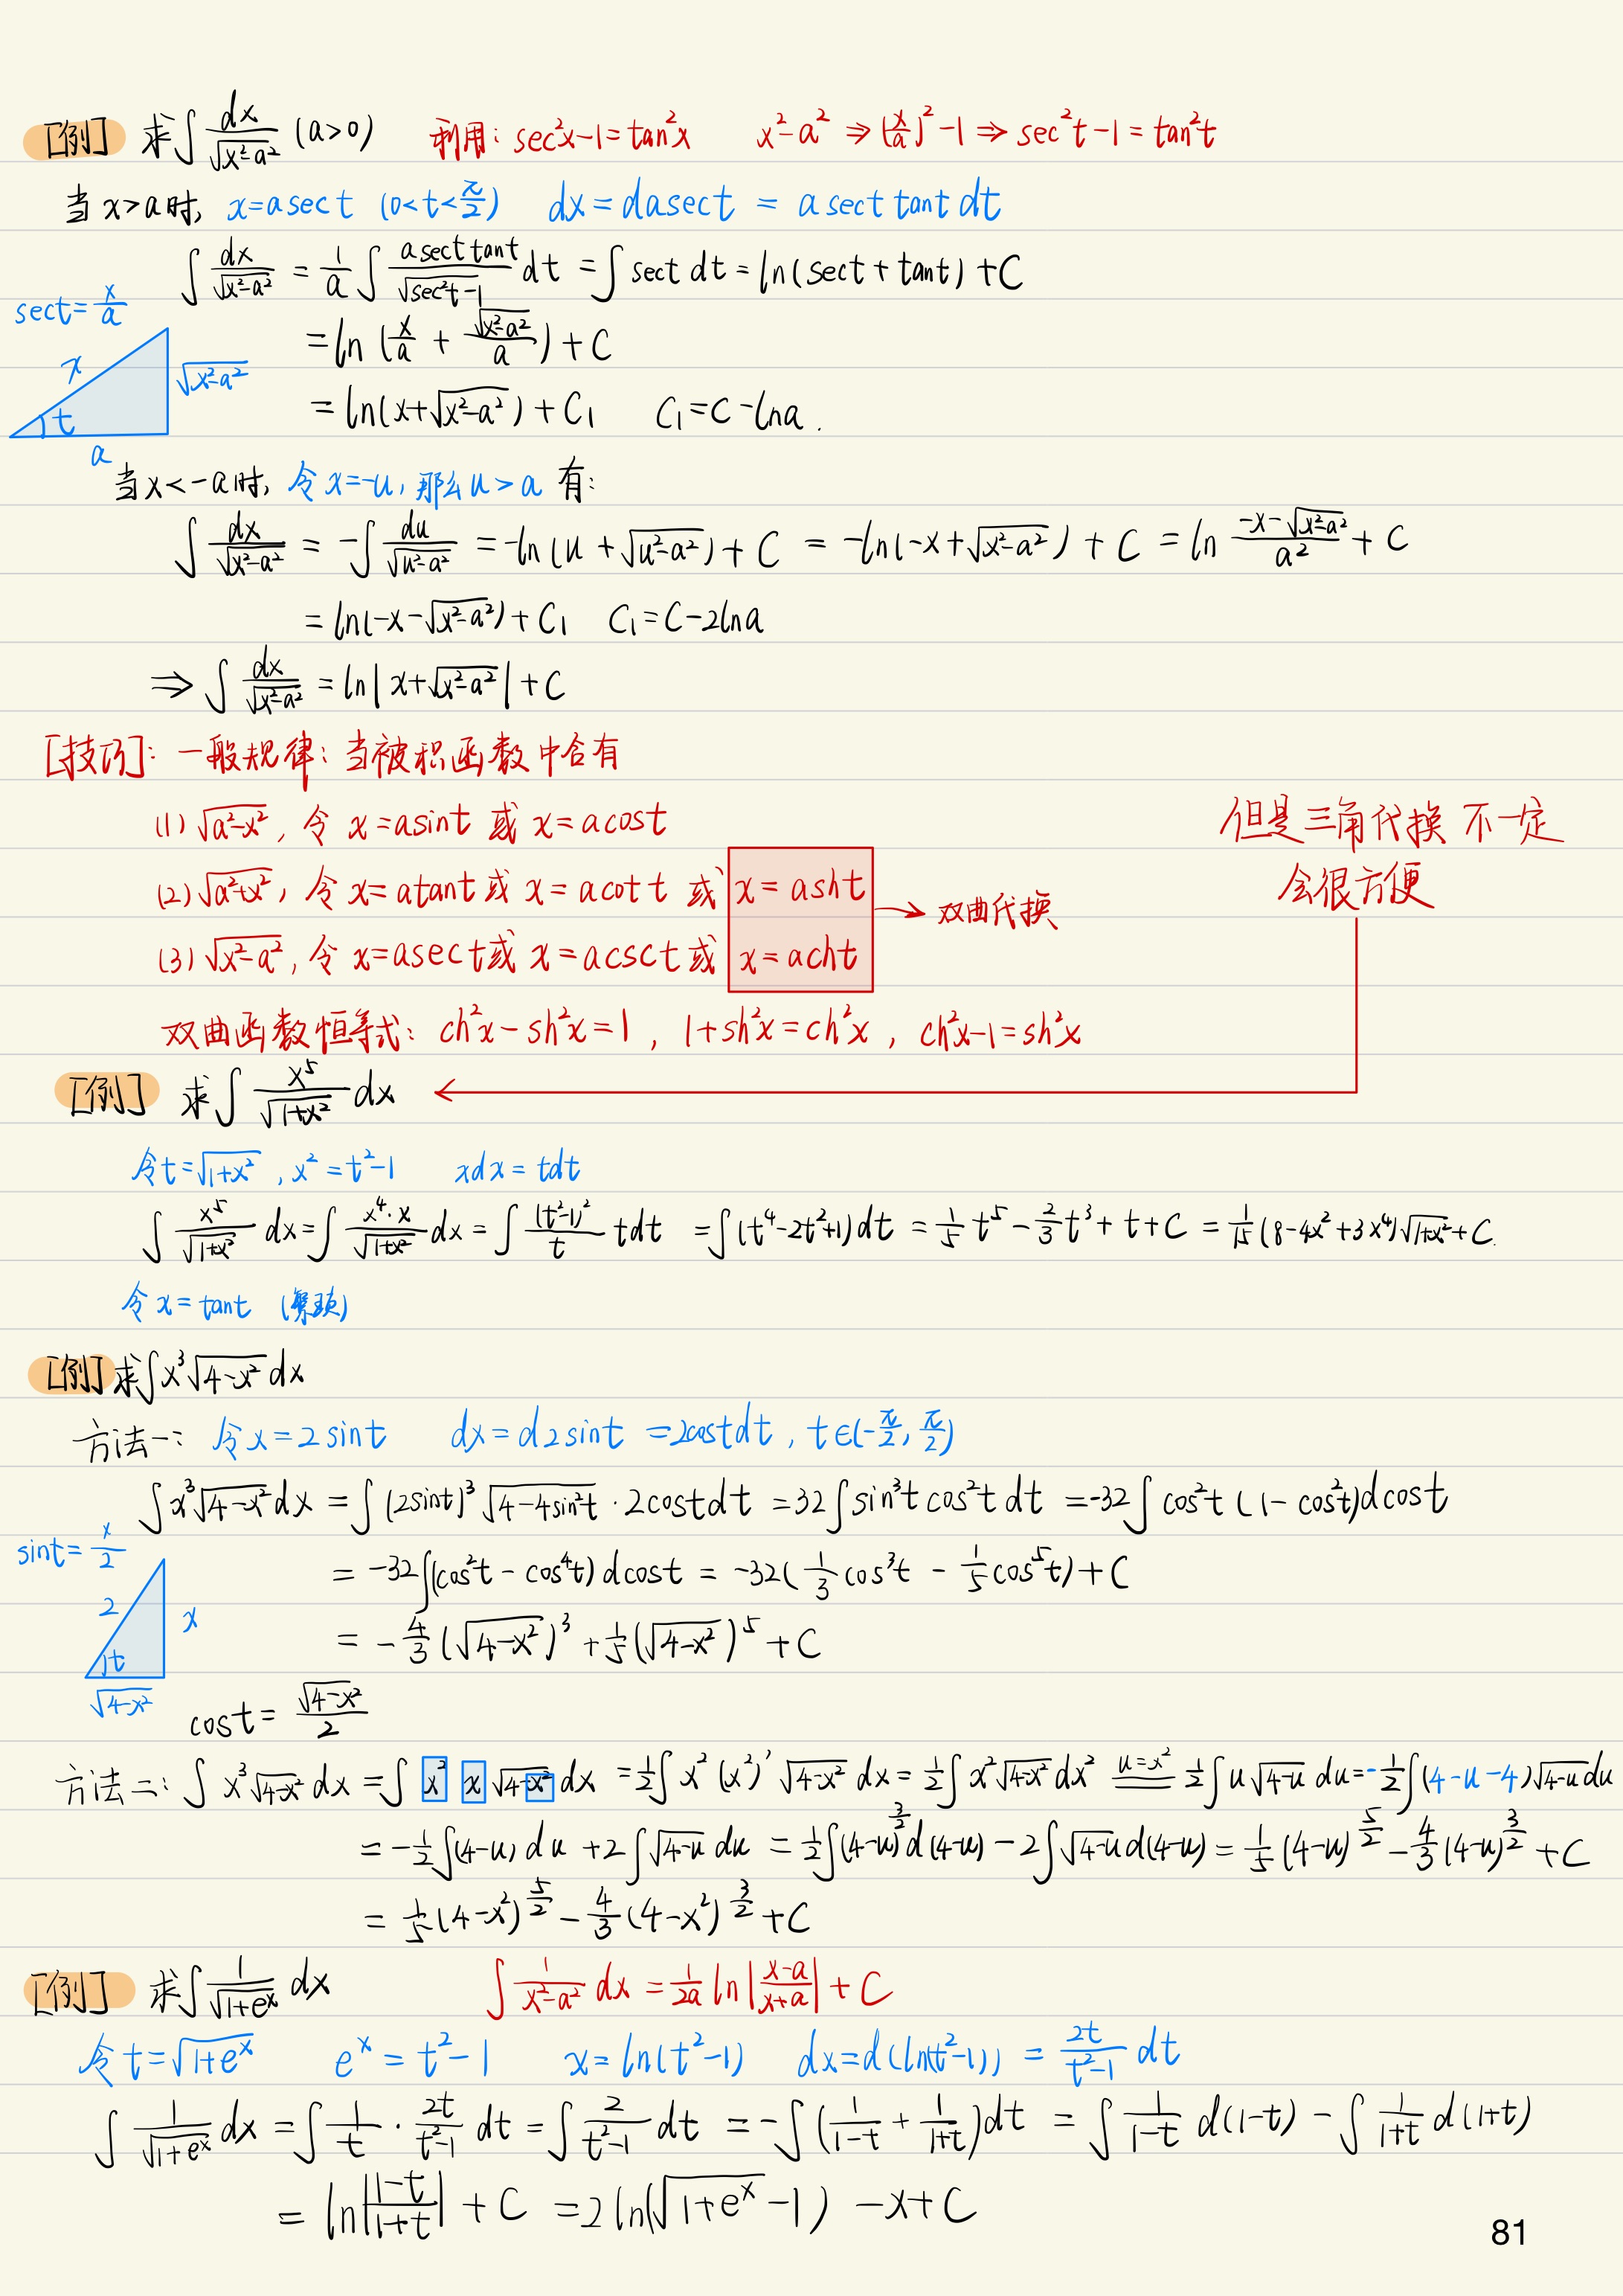 [例] 求∫ dx/√(x²-a²) (a>0) 利用: sec²x-1=tan²x x²-a² ⇒ (x/a)²-1 ⇒ sec²t-1=tan²t
当 x>a时, x=asect (0<t<π/2) dx=dasect = asect tant dt
∫ dx/√(x²-a²) = 1/a ∫ asect tant/√(sec²t-1) dt = ∫ sect dt = ln(sect+tant)+C
sect=x/a
= ln(x/a + √(x²-a²)/a)+C
x √(x²-a²) t a
= ln(x+√(x²-a²))+C₁ C₁=C-lna.
当x<-a时, 令x=-u, 那么u>a 有:
∫ dx/√(x²-a²) = -∫ du/√(u²-a²) = -ln(u+√(u²-a²))+C = -ln(-x+√(x²-a²))+C = ln (-x-√(x²-a²))/a² + C
= ln(-x-√(x²-a²))+C₁ C₁=C-2lna
⇒ ∫ dx/√(x²-a²) = ln|x+√(x²-a²)|+C
[技巧]: 一般规律: 当被积函数中含有
(1) √(a²-x²), 令 x=asint 或 x=acost
(2) √(a²+x²), 令 x=atant 或 x=acott 或 x=asht
(3) √(x²-a²), 令 x=asect 或 x=acsct 或 x=acht
→ 双曲代换
但是三角代换 不一定
会很方便
双曲函数恒等式: ch²x-sh²x=1, 1+sh²x=ch²x, ch²x-1=sh²x
[例] 求∫ x⁵/√(1+x²) dx
令t=√(1+x²), x²=t²-1 xdx=tdt
∫ x⁵/√(1+x²) dx = ∫ x⁴·x/√(1+x²) dx = ∫ (t²-1)²/t tdt = ∫(t⁴-2t²+1)dt = 1/5 t⁵ - 2/3 t³ + t + C = 1/15 (8-4x²+3x⁴)√(1+x²)+C.
令x=tant
[例] 求∫x³√(4-x²) dx
方法一: 令x=2sint dx=d2sint =2costdt, t∈(-π/2, π/2)
∫x³√(4-x²)dx = ∫(2sint)³√(4-4sin²t)·2costdt = 32∫sin³t cos²t dt = -32∫cos²t(1-cos²t)dcost
sint=x/2
= -32∫(cos²t-cos⁴t)dcost = -32(1/3 cos³t - 1/5 cos⁵t)+C
2 x t √(4-x²)
= -4/3(√(4-x²))³+1/5(√(4-x²))⁵+C
cost= √(4-x²)/2
方法二: ∫x³√(4-x²) dx = ∫ x² x √(4-x²) dx = 1/2∫x²(x²)'√(4-x²) dx = 1/2∫x²√(4-x²)dx² u=x² 1/2∫u√(4-u) du = -1/2∫(4-u-4)√(4-u)du
= -1/2∫(4-u) du + 2∫√(4-u) du = 1/2∫(4-u)^(3/2)d(4-u) - 2∫√(4-u)d(4-u) = 1/5(4-u)^(5/2) - 4/3(4-u)^(3/2)+C
= 1/5(4-x²)^(5/2) - 4/3(4-x²)^(3/2)+C
[例] 求∫ 1/√(1+eˣ) dx ∫ 1/(x²-a²) dx = 1/2a ln|(x-a)/(x+a)|+C
令t=√(1+eˣ) eˣ=t²-1 x=ln(t²-1) dx=d(ln(t²-1)) = 2t/(t²-1) dt
∫ 1/√(1+eˣ) dx = ∫ 1/t · 2t/(t²-1) dt = ∫ 2/(t²-1) dt = -∫(1/(1-t)+1/(1+t))dt = ∫ 1/(1-t) d(1-t) - ∫ 1/(1+t) d(1+t)
= ln|(1-t)/(1+t)|+C = 2ln(√(1+eˣ)-1)-x+C
81